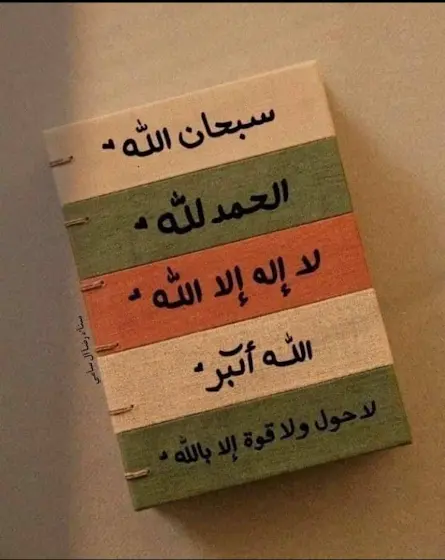 سبحان الله
الحمد لله
لا إله إلا الله
الله أكبر
لا حول ولا قوة إلا بالله